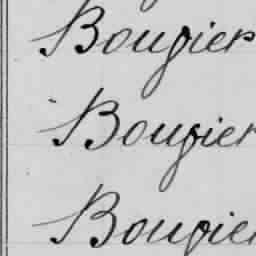 Bougier
Bougier
Bougier